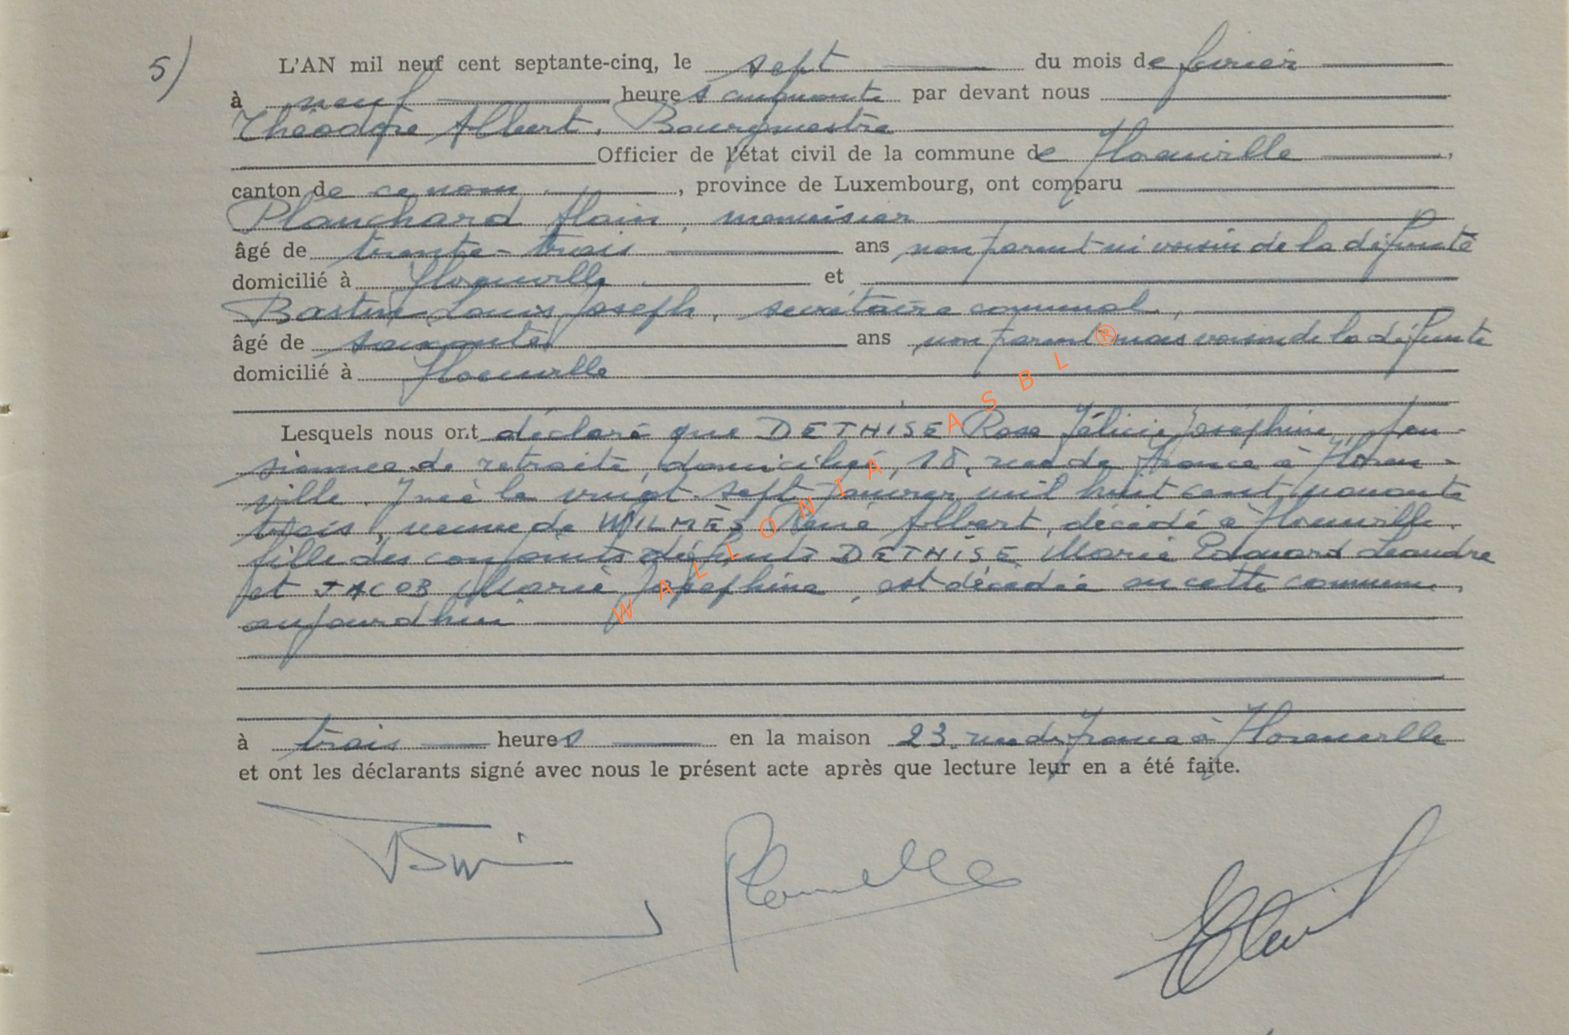 5)
L'AN mil neuf cent septante-cinq, le sept du mois de février
à neuf heures cinquante par devant nous
Théodore Albert, Bourgmestre
Officier de l'état civil de la commune de Florenville,
canton de ce nom, province de Luxembourg, ont comparu
Planchard Alain, menuisier
âgé de trente-trois ans non parent ni voisin de la défunte
domicilié à Florenville et
Bastin Louis Joseph, secrétaire communal,
âgé de soixante ans non parent mais voisin de la défunte
domicilié à Florenville
Lesquels nous ont déclaré que DETHISE Rosa Félicie Joséphine, pen-
sionnée de retraite domiciliée, 18, rue de France à Floren-
ville. Y née le vingt-sept janvier mil huit cent nonante
trois, veuve de WILMÈS René Albert, décédé à Florenville,
fille des conjoints défunts DETHISE Marie Edouard Léandre
et JACOB Marie Joséphine, est décédée en cette commune,
aujourdhui
à trois heures en la maison 23, rue de France à Florenville
et ont les déclarants signé avec nous le présent acte après que lecture leur en a été faite.
WALLONIA ASBL ®